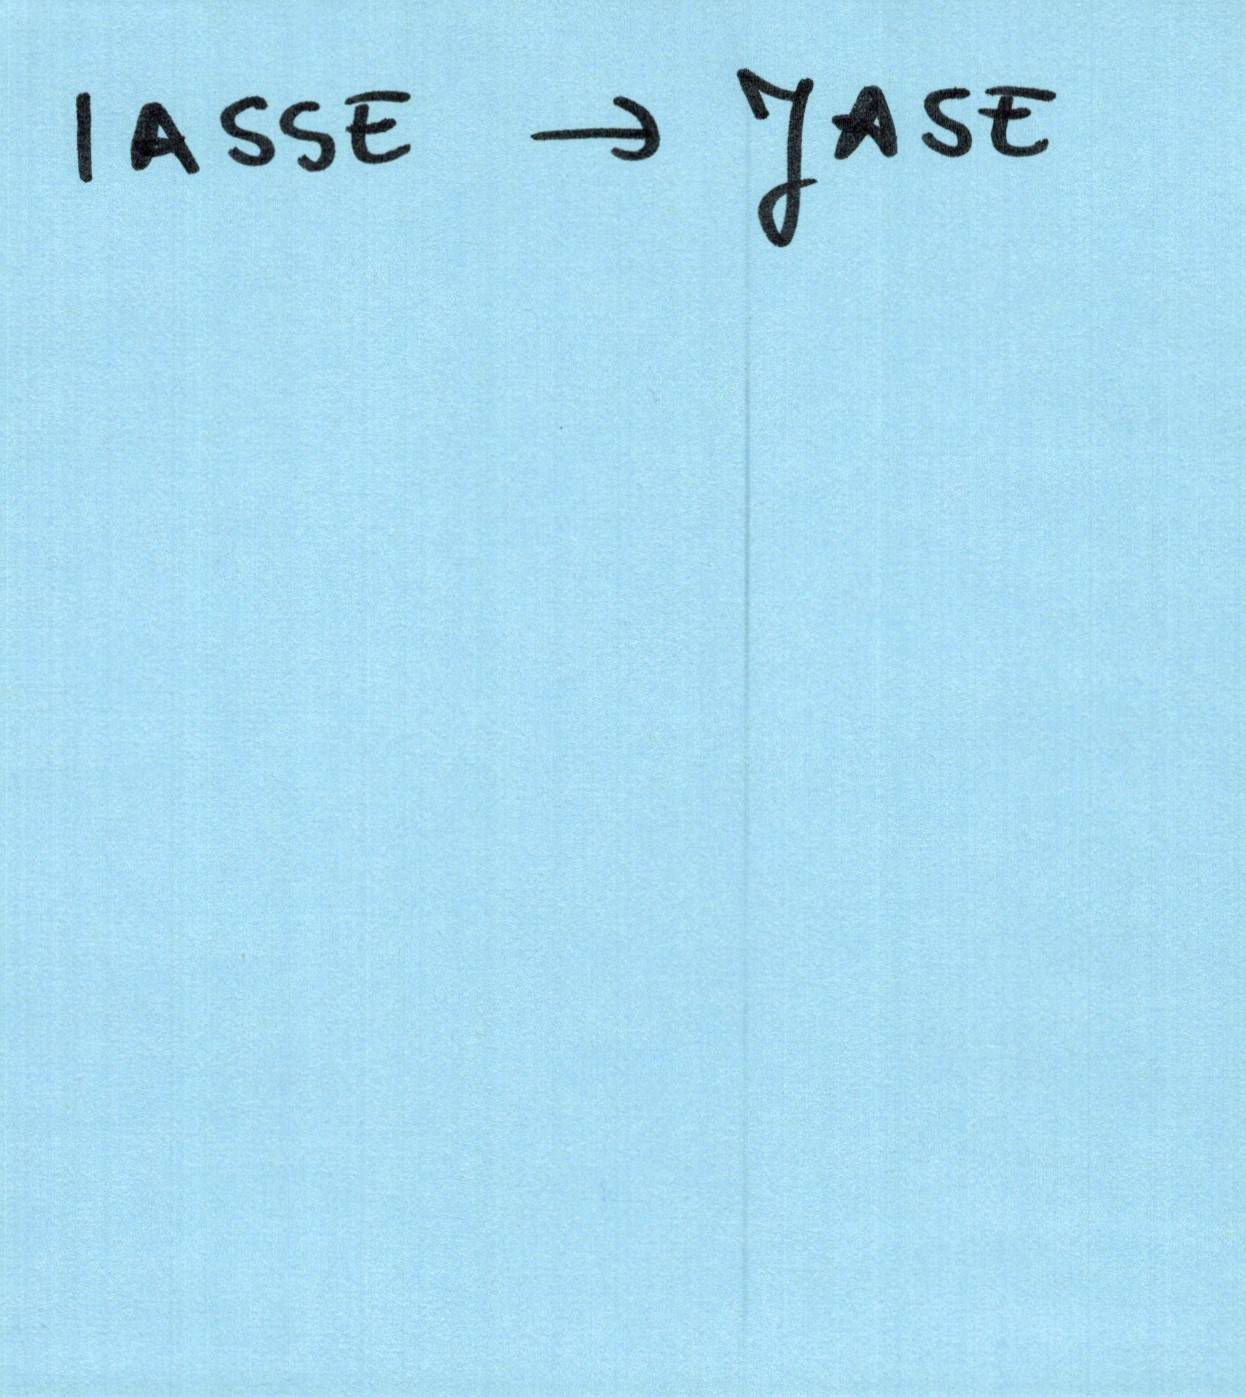 IASSE → JASE